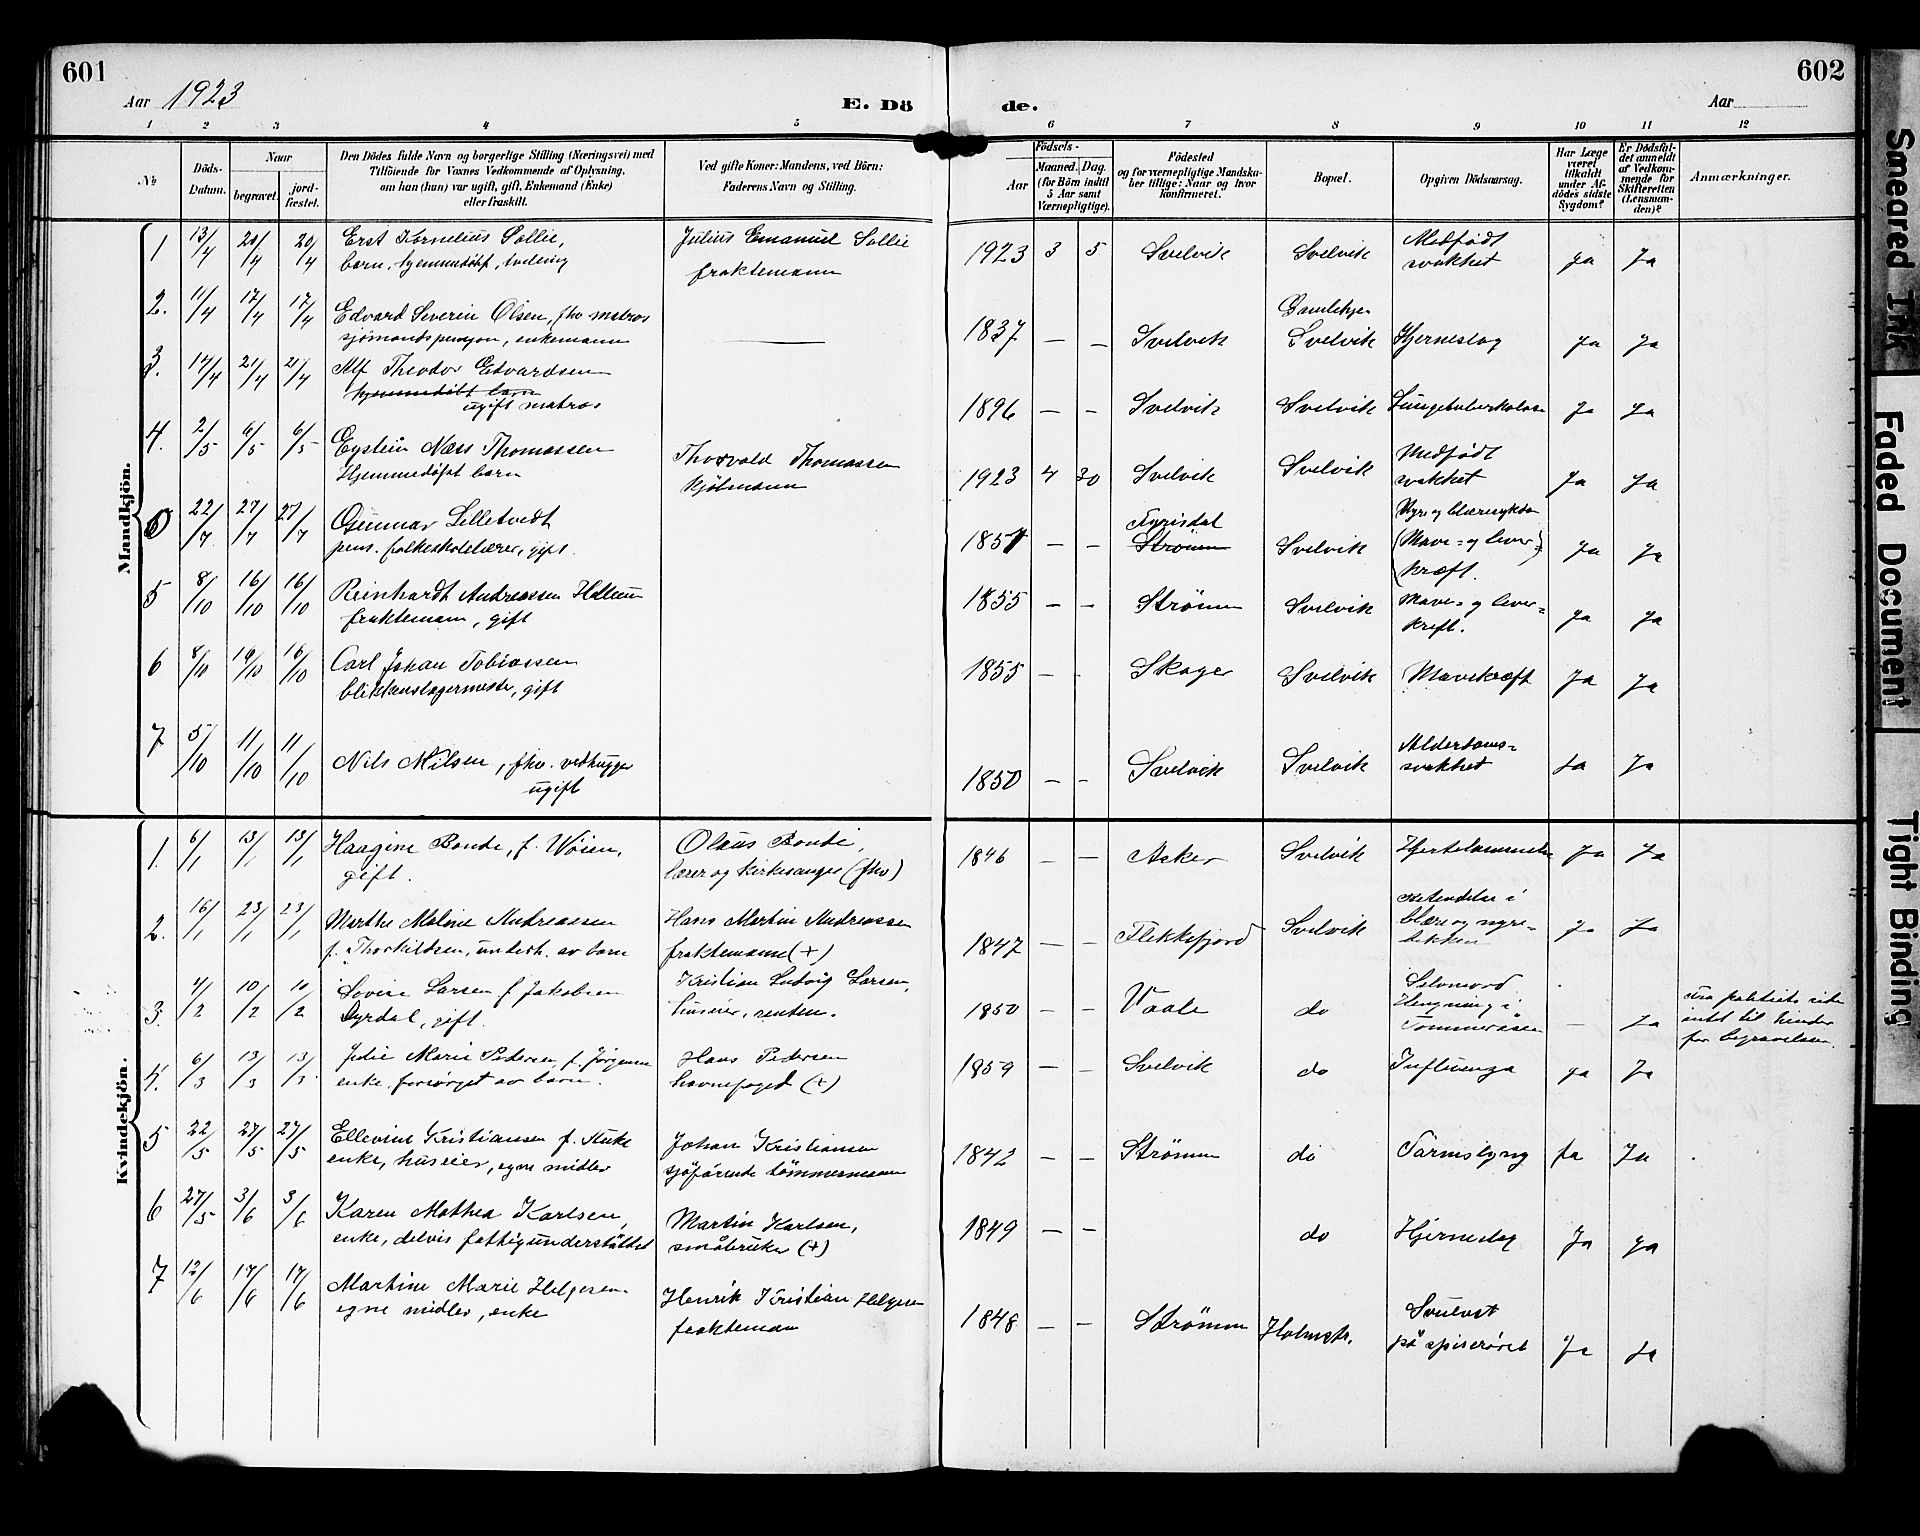 601
602
Aar 1923
E. Dö
de.
Aar
1 2 3 4 5 6 7 8 9 10 11 12
No
Döds-
Datum.
Naar
begravet.
jord-
fæstet.
Den Dödes fulde Navn og borgerlige Stilling (Næringsvei) med
Tilföiende for Voxnes Vedkommende af Oplysning,
om han (hun) var ugift, gift, Enkemand (Enke)
eller fraskilt.
Ved gifte Koner: Mandens, ved Börn:
Faderens Navn og Stilling.
Födsels-
Aar
Maaned. Dag.
(for Börn indtil
5 Aar samt
Værnepligtige).
Födested
og for værnepligtige Mandska-
ber tillige: Naar og hvor
konfirmeret.
Bopæl.
Opgiven Dödsaarsag.
Har Læge
været
tilkaldt
under Af-
dödes sidste
Sygdom?
Er Dödsfal-
det anmeldt
af Vedkom-
mende for
Skifteretten
(Lensman-
den)?
Anmærkninger.
Mandkjön.
1 13/4 20/4 20/4 Kornelius Sollie, Julius Emanuel Sollie 1923 3 5 Svelvik Svelvik Medfödt
barn, hjemmedöbt, tvilling fraktemann svakhet Ja Ja
2. 11/4 17/4 17/4 Edvard Severin Olsen, fhv matros 1837 – – Svelvik Svelvik Hjerneslag Ja Ja
sjömandspensjon, enkemann
3. 14/4 21/4 21/4 Alf Theodor Edvardsen
hjemmedöbt barn
ugift matros 1896 – – Svelvik Svelvik Lungetuberkulose Ja Ja
4. 2/5 6/5 6/5 Eystein Næss Thomassen Thorvald Thomassen 1923 4 30 Svelvik Svelvik Medfödt
Hjemmedöpt barn kjöbmann svakhet Ja Ja
22/7 27/7 27/7 Gunnar Lilletvedt Fyrisdal
pens. folkeskolelærer, gift. – – Strömm Svelvik (Mave- og lever- Ja Ja
kræft.
5 8/10 16/10 16/10 Reinhardt Andreassen Hellum 1855 – – Strömm Svelvik Mave- og lever-
fraktemann, gift kreft. Ja Ja
6 8/10 16/10 16/10 Carl Johan Tobiassen 1855 – – Skoger Svelvik Mavekræft Ja Ja
blikkenslagermester, gift
7 5/10 11/10 11/10 Nils Nilsen, fhv. vedhugger 1850 – – Svelvik Svelvik Alderdoms-
ugift svakhet Ja Ja
Kvindekjön.
1. 6/1 13/1 13/1 Haagine Bonde, f. Wöien, Olaus Bonde, 1846 – – Asker Svelvik Ja Ja
gift. lærer og kirkesanger (fhv)
2. 16/1 23/1 23/1 Marthe Maline Andreassen Hans Martin Andreassen 1847 – – Flekkefjord Svelvik Betendelse i
f. Thorkildsen, underh. av barn fraktemann (+) blære og nyre-
bekken Ja Ja
3. 4/2 10/2 10/2 Lovise Larsen f Jakobsen Kristian Ludvig Larsen, 1850 – – Vaale do Selvmord
Dyrdal, gift. huseier, rentier. Hengning i
Tömmeråsen – Ja
Fra politiets side
intet til hinder
for begravelsen.
4. 6/3 13/3 13/3 Julie Marie Pedersen, f. Jörgensen Hans Pedersen 1859 – – Svelvik do Influenza Ja Ja
enke, forsörget av barn. havnefoged (+)
5 22/5 27/5 27/5 Ellevine Kristiansen f. Auke Johan Kristiansen 1842 – – Strömm do Tarmslyng Ja Ja
enke, huseier, egne midler sjöfarende tömmermann
6 27/5 3/6 3/6 Karen Mathea Karlsen, Martin Karlsen, 1849 – – do Hjerneslag Ja Ja
enke, delvis fattigunderstöttet småbruker (+)
7 12/6 17/6 17/6 Martine Marie Helgesen Henrik Kristian Helgesen 1848 – – Strömm Holmstr. Svulvst
egne midler, enke fraktemann på spiseröret Ja Ja
Smeared Ink
Faded Document
Tight Binding